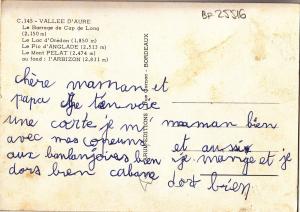 C.145 - VALLEE D'AURE
BF 25516
Le Barrage de Cap de Long
(2.150 m)
Le Lac d'Orédon (1.852 m)
Le Pic d'ANGLADE (2.513 m)
Le Mont PELAT (2.474 m)
au fond : l'ARBIZON (2.831 m)
EDITIONS BORDEAUX
chère maman et
papa je t'envoie
une carte je m
avec mes copeurs
aux bien
dors bien cabane
maman bien
et aussi
je mange et je
dors bien